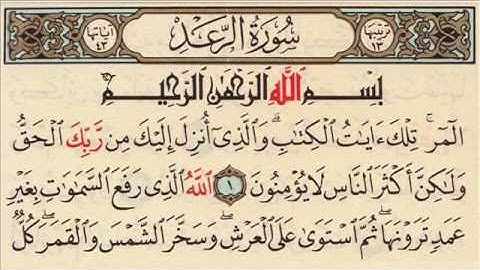 ترتيبها ١٣
سُورَةُ الرَّعْدِ
آياتها ٤٣
بِسْمِ ٱللَّهِ ٱلرَّحْمَٰنِ ٱلرَّحِيمِ
الٓمٓر ۚ تِلْكَ ءَايَٰتُ ٱلْكِتَٰبِ ۗ وَٱلَّذِىٓ أُنزِلَ إِلَيْكَ مِن رَّبِّكَ ٱلْحَقُّ
وَلَٰكِنَّ أَكْثَرَ ٱلنَّاسِ لَا يُؤْمِنُونَ ١ ٱللَّهُ ٱلَّذِى رَفَعَ ٱلسَّمَٰوَٰتِ بِغَيْرِ
عَمَدٍ تَرَوْنَهَا ۖ ثُمَّ ٱسْتَوَىٰ عَلَى ٱلْعَرْشِ ۖ وَسَخَّرَ ٱلشَّمْسَ وَٱلْقَمَرَ ۖ كُلٌّ